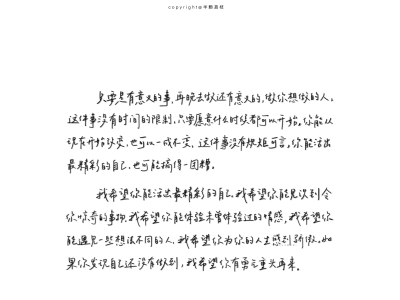 copyright@半颗素材
只要是有意义的事，再晚去做还有意义的。做你想做的人。
这件事没有时间的限制，只要愿意什么时候都可以开始。你能从
现在开始改变，也可以一成不变，这件事没有规矩可言。你能活出
最精彩的自己，也可能搞得一团糟。
我希望你能活出最精彩的自己。我希望你能见识到令
你惊奇的事物。我希望你能体验未曾体验过的情感。我希望你
能遇见一些想法不同的人。我希望你为你的人生感到骄傲。如
果你发现自己还没有做到，我希望你有勇气重头再来。